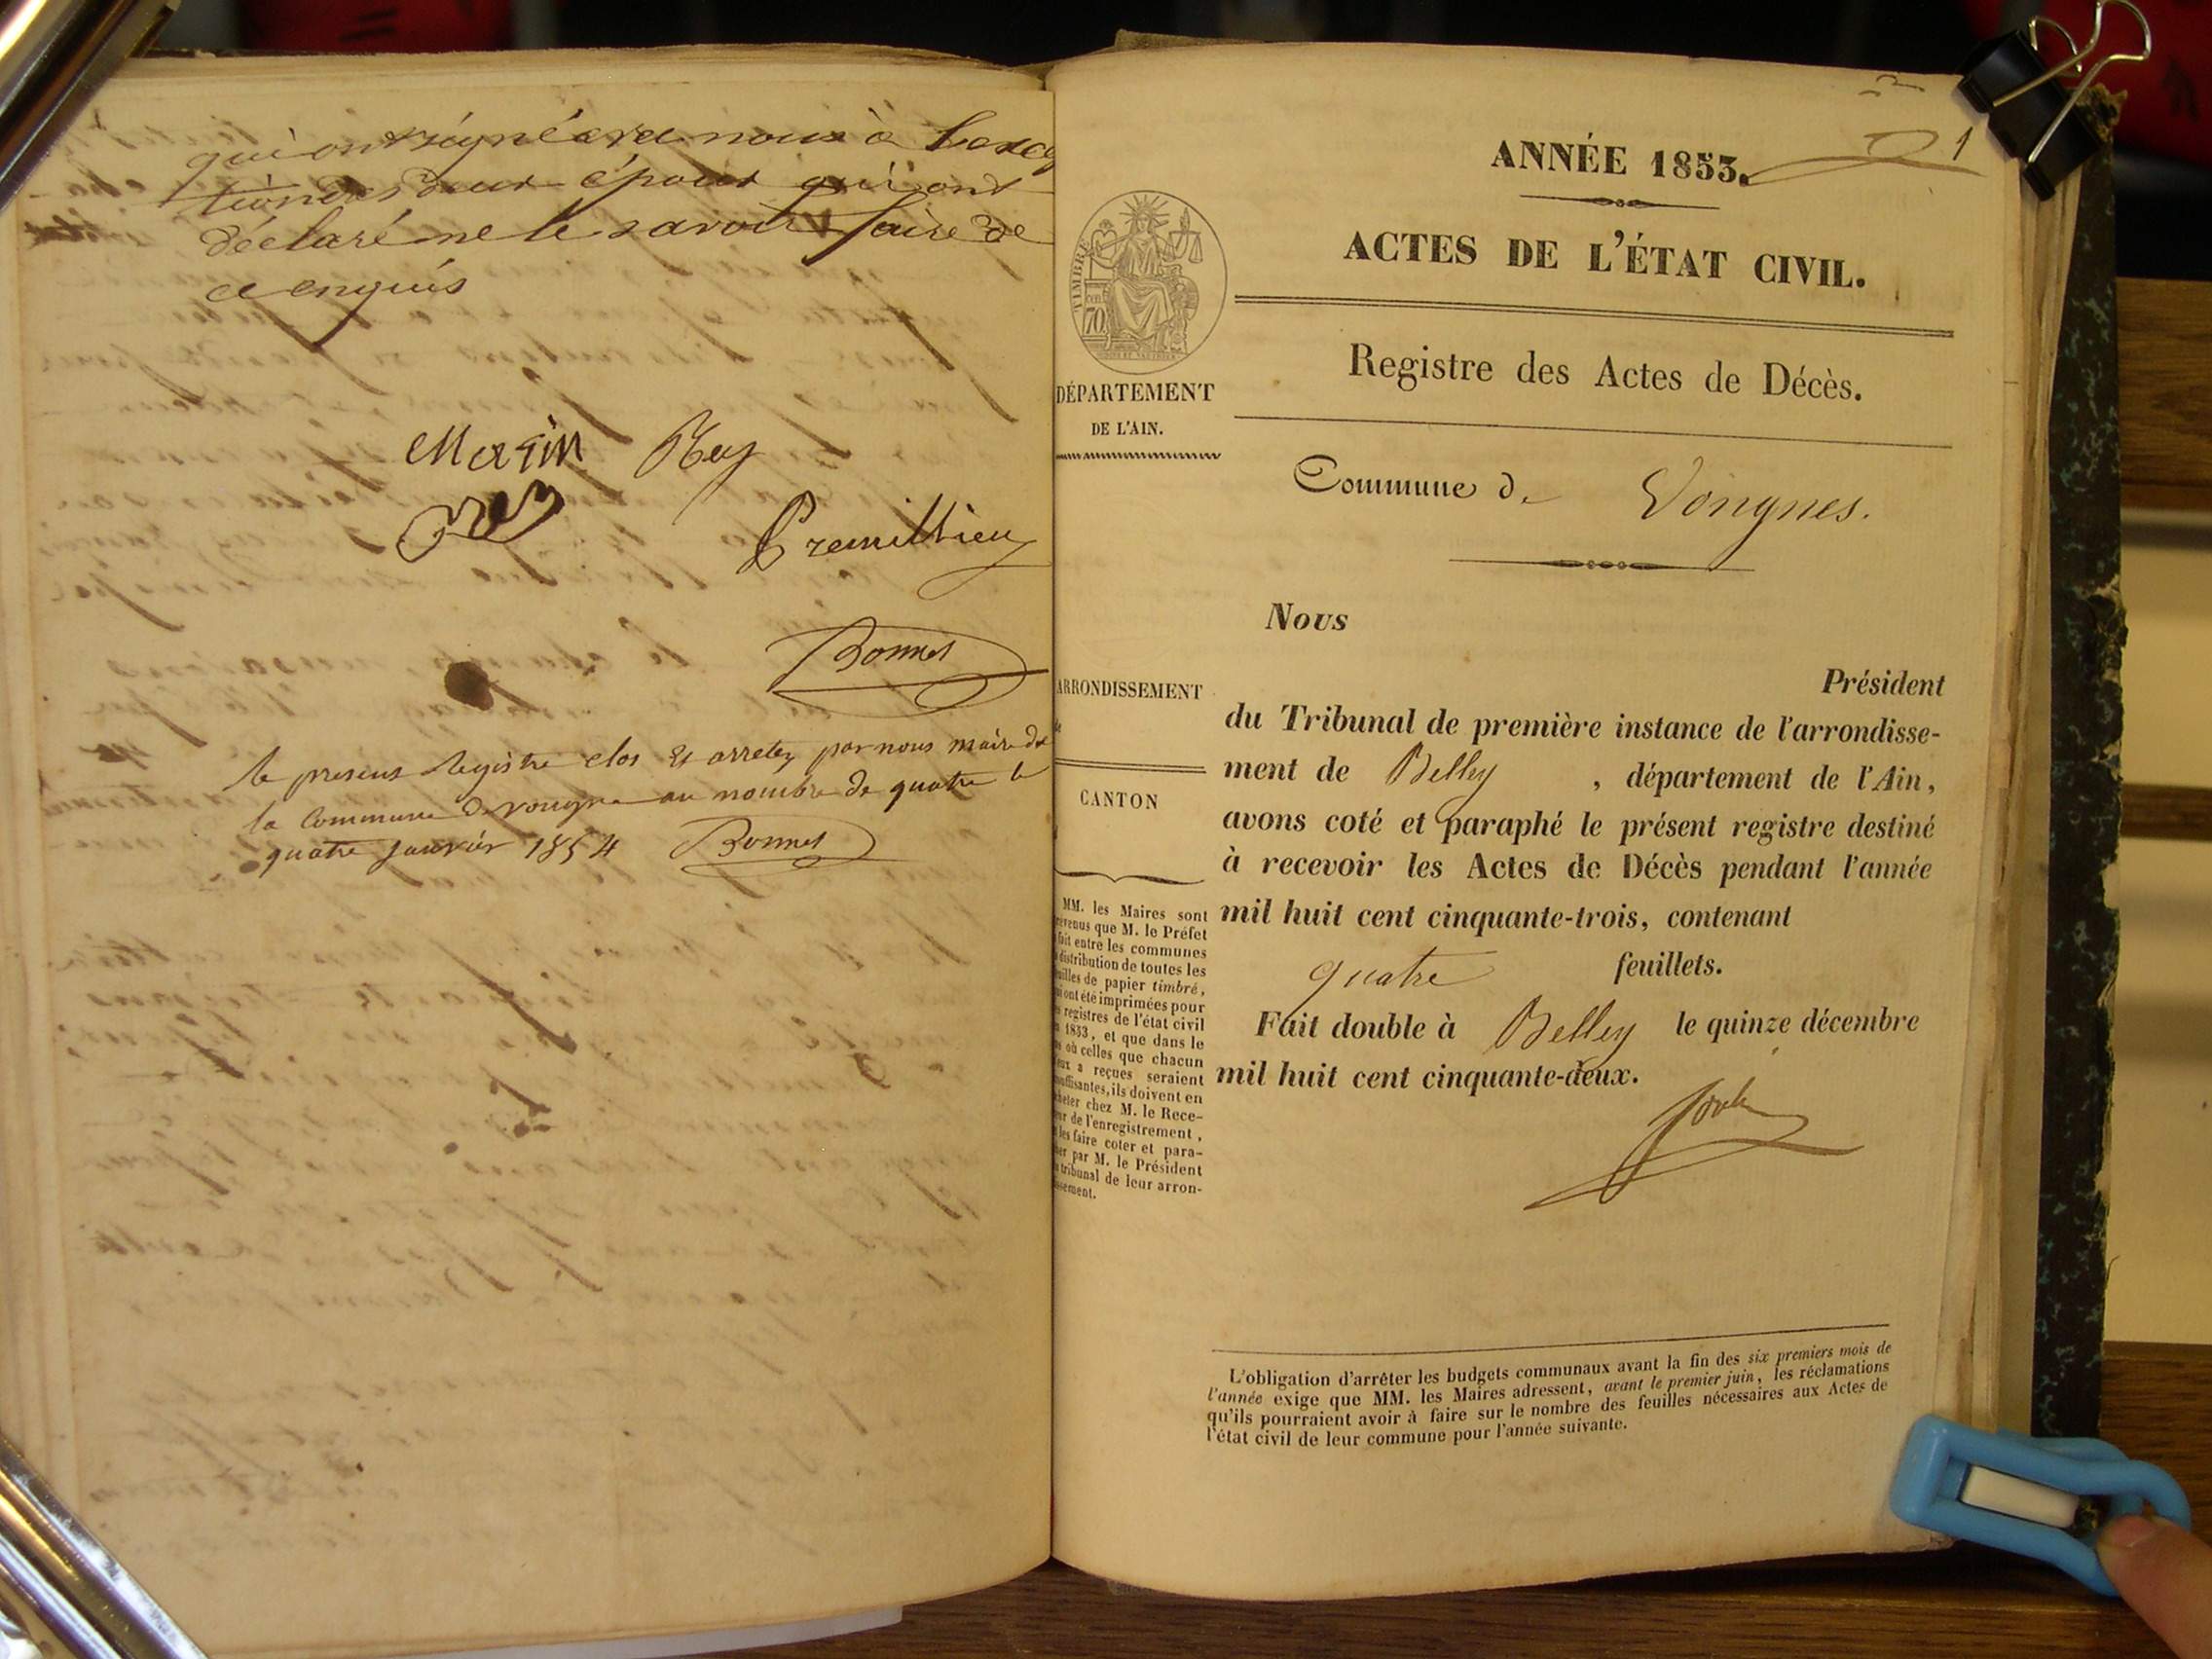 qui ont signé avec nous à l'excep
tion des deux époux qui ont
déclaré ne le savoir faire de
ce enquis
Morin Rey
Rey
Premillieu
Bonnet
le present Registre clos Et arretez par nous maire de
la Commune de vongne au nombre de quatre le
quatre janvier 1854 Bonnet
1
ANNÉE 1853.
ACTES DE L'ÉTAT CIVIL.
TIMBRE
70
Registre des Actes de Décès.
DÉPARTEMENT
DE L'AIN.
Commune de Vongnes.
Nous
Président
ARRONDISSEMENT
du Tribunal de première instance de l'arrondisse-
ment de Belley , département de l'Ain,
CANTON
avons coté et paraphé le présent registre destiné
à recevoir les Actes de Décès pendant l'année
mil huit cent cinquante-trois, contenant
quatre feuillets.
Fait double à Belley le quinze décembre
mil huit cent cinquante-deux.
MM. les Maires sont
revenus que M. le Préfet
fait entre les communes
distribution de toutes les
uilles de papier timbré,
ui ont été imprimées pour
s registres de l'état civil
n 1853, et que dans le
s où celles que chacun
eux a reçues seraient
suffisantes, ils doivent en
cheter chez M. le Rece-
eur de l'enregistrement,
les faire coter et para-
er par M. le Président
tribunal de leur arron-
ssement.
L'obligation d'arrêter les budgets communaux avant la fin des six premiers mois de
l'année exige que MM. les Maires adressent, avant le premier juin, les réclamations
qu'ils pourraient avoir à faire sur le nombre des feuilles nécessaires aux Actes de
l'état civil de leur commune pour l'année suivante.